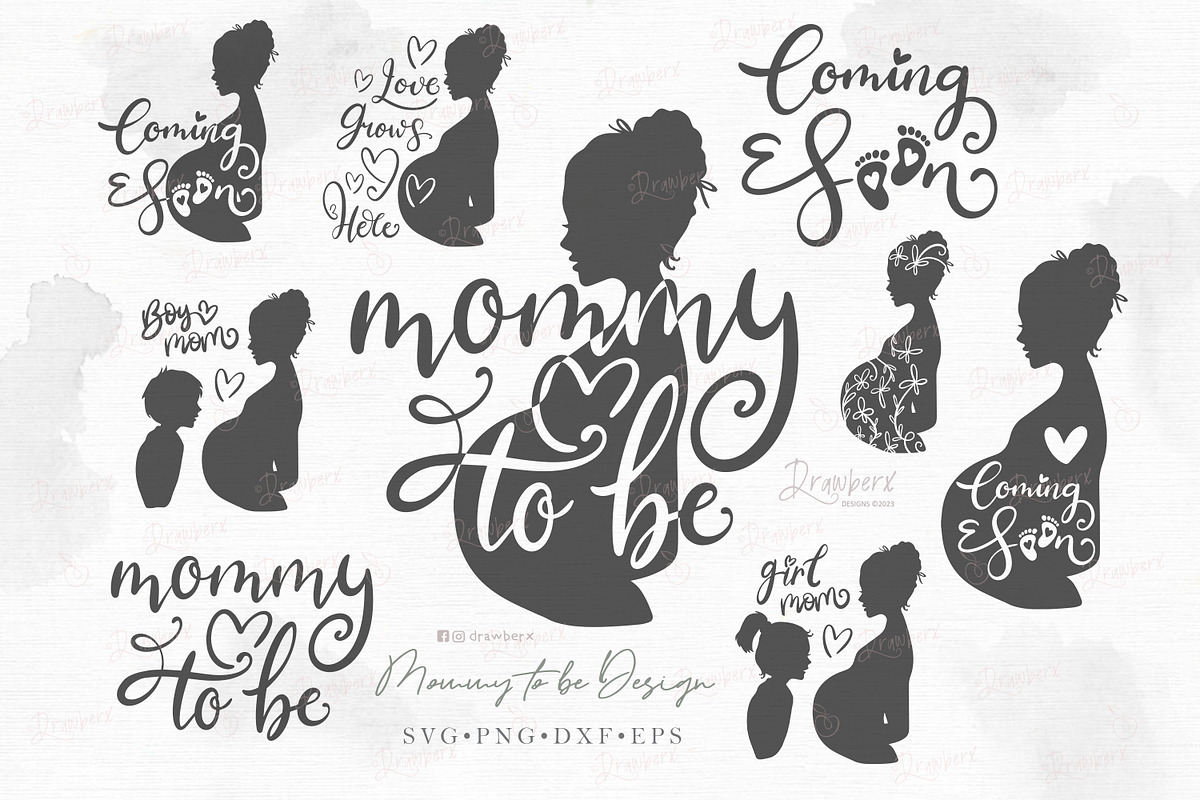 Coming
Soon
Love
Grows
Here
Coming
Soon
mommy
to be
Boy
mom
Coming
Soon
Drawberx
DESIGNS ©2023
mommy
to be
girl
mom
drawberx
Mommy to be Design
SVG•PNG•DXF•EPS
©Drawberx